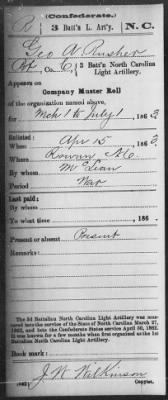 (Confederate.)
R 3 Batt'n L. Art'y. N. C.
Geo A. Rusher
Pvt, Co. C, 3 Batt'n North Carolina
Light Artillery.
Appears on
Company Muster Roll
of the organization named above,
for Mch 1 to July 1, 1863
Enlisted:
When Apr 15, 1863
Where Rowan N.C.
By whom McLean
Period War
Last paid:
By whom
To what time , 186 .
Present or absent Present
Remarks:
The 3d Battalion North Carolina Light Artillery was mustered
into the service of the State of North Carolina March 17,
1862, and into the Confederate States service April 30, 1862.
It was known for a few months when first organized as the 1st
Battalion North Carolina Light Artillery.
Book mark:
J. W. Wilkinson
(642) Copyist.